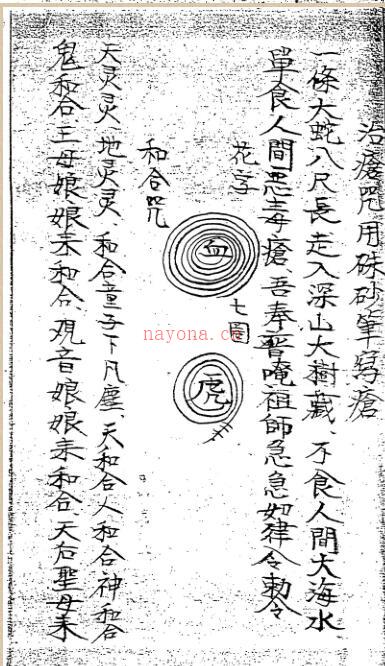 治瘡咒用硃砂筆寫瘡
一條大蛇八尺長走入深山大樹藏、不食人間大海水
單食人間惡毒瘡、吾奉普唵祖師急急如律令勅令
花字
血
七圈
虎
和合咒
天灵灵、地灵灵、和合童子下凡塵、天和合人和合神和合
鬼和合王母娘娘來和合、观音娘娘來和合、天后聖母來
nayona.cn